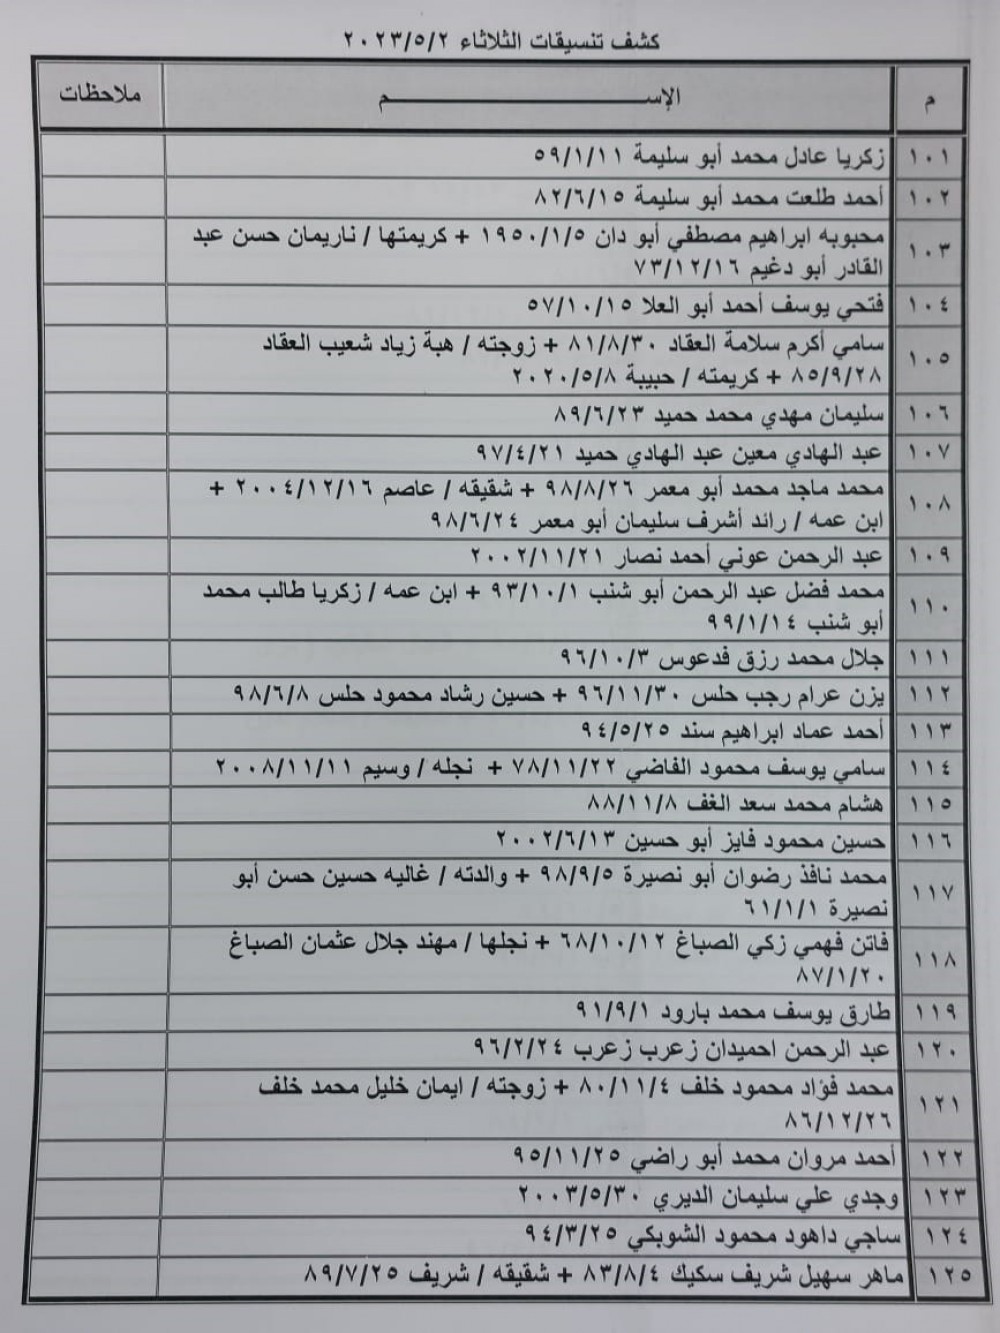 كشف تنسيقات الثلاثاء ٢٠٢٣/٥/٢
م الإســــــــم ملاحظات
١٠١ زكريا عادل محمد أبو سليمة ٥٩/١/١١
١٠٢ أحمد طلعت محمد أبو سليمة ٨٢/٦/١٥
١٠٣ محبوبه ابراهيم مصطفي أبو دان ١٩٥٠/١/٥ + كريمتها / ناريمان حسن عبد
القادر أبو دغيم ٧٣/١٢/١٦
١٠٤ فتحي يوسف أحمد أبو العلا ٥٧/١٠/١٥
١٠٥ سامي أكرم سلامة العقاد ٨١/٨/٣٠ + زوجته / هبة زياد شعيب العقاد
٨٥/٩/٢٨ + كريمته / حبيبة ٢٠٢٠/٥/٨
١٠٦ سليمان مهدي محمد حميد ٨٩/٦/٢٣
١٠٧ عبد الهادي معين عبد الهادي حميد ٩٧/٤/٢١
١٠٨ محمد ماجد محمد أبو معمر ٩٨/٨/٢٦ + شقيقه / عاصم ٢٠٠٤/١٢/١٦ +
ابن عمه / رائد أشرف سليمان أبو معمر ٩٨/٦/٢٤
١٠٩ عبد الرحمن عوني أحمد نصار ٢٠٠٢/١١/٢١
١١٠ محمد فضل عبد الرحمن أبو شنب ٩٣/١٠/١ + ابن عمه / زكريا طالب محمد
أبو شنب ٩٩/١/١٤
١١١ جلال محمد رزق قدعوس ٩٦/١٠/٣
١١٢ يزن عرام رجب حلس ٩٦/١١/٣٠ + حسين رشاد محمود حلس ٩٨/٦/٨
١١٣ أحمد عماد ابراهيم سند ٩٤/٥/٢٥
١١٤ سامي يوسف محمود القاضي ٧٨/١١/٢٢ + نجله / وسيم ٢٠٠٨/١١/١١
١١٥ هشام محمد سعد الغف ٨٨/١١/٨
١١٦ حسين محمود فايز أبو حسين ٢٠٠٢/٦/١٣
١١٧ محمد نافذ رضوان أبو نصيرة ٩٨/٩/٥ + والدته / غاليه حسين حسن أبو
نصيرة ٦١/١/١
١١٨ فاتن فهمي زكي الصباغ ٦٨/١٠/١٢ + نجلها / مهند جلال عثمان الصباغ
٨٧/١/٢٠
١١٩ طارق يوسف محمد بارود ٩١/٩/١
١٢٠ عبد الرحمن احميدان زعرب زعرب ٩٦/٢/٢٤
١٢١ محمد فؤاد محمود خلف ٨٠/١١/٤ + زوجته / ايمان خليل محمد خلف
٨٦/١٢/٢٦
١٢٢ أحمد مروان محمد أبو راضي ٩٥/١١/٢٥
١٢٣ وجدي علي سليمان الديري ٢٠٠٣/٥/٣٠
١٢٤ ساجي داهود محمود الشوبكي ٩٤/٣/٢٥
١٢٥ ماهر سهيل شريف سكيك ٨٣/٨/٤ + شقيقه / شريف ٨٩/٧/٢٥